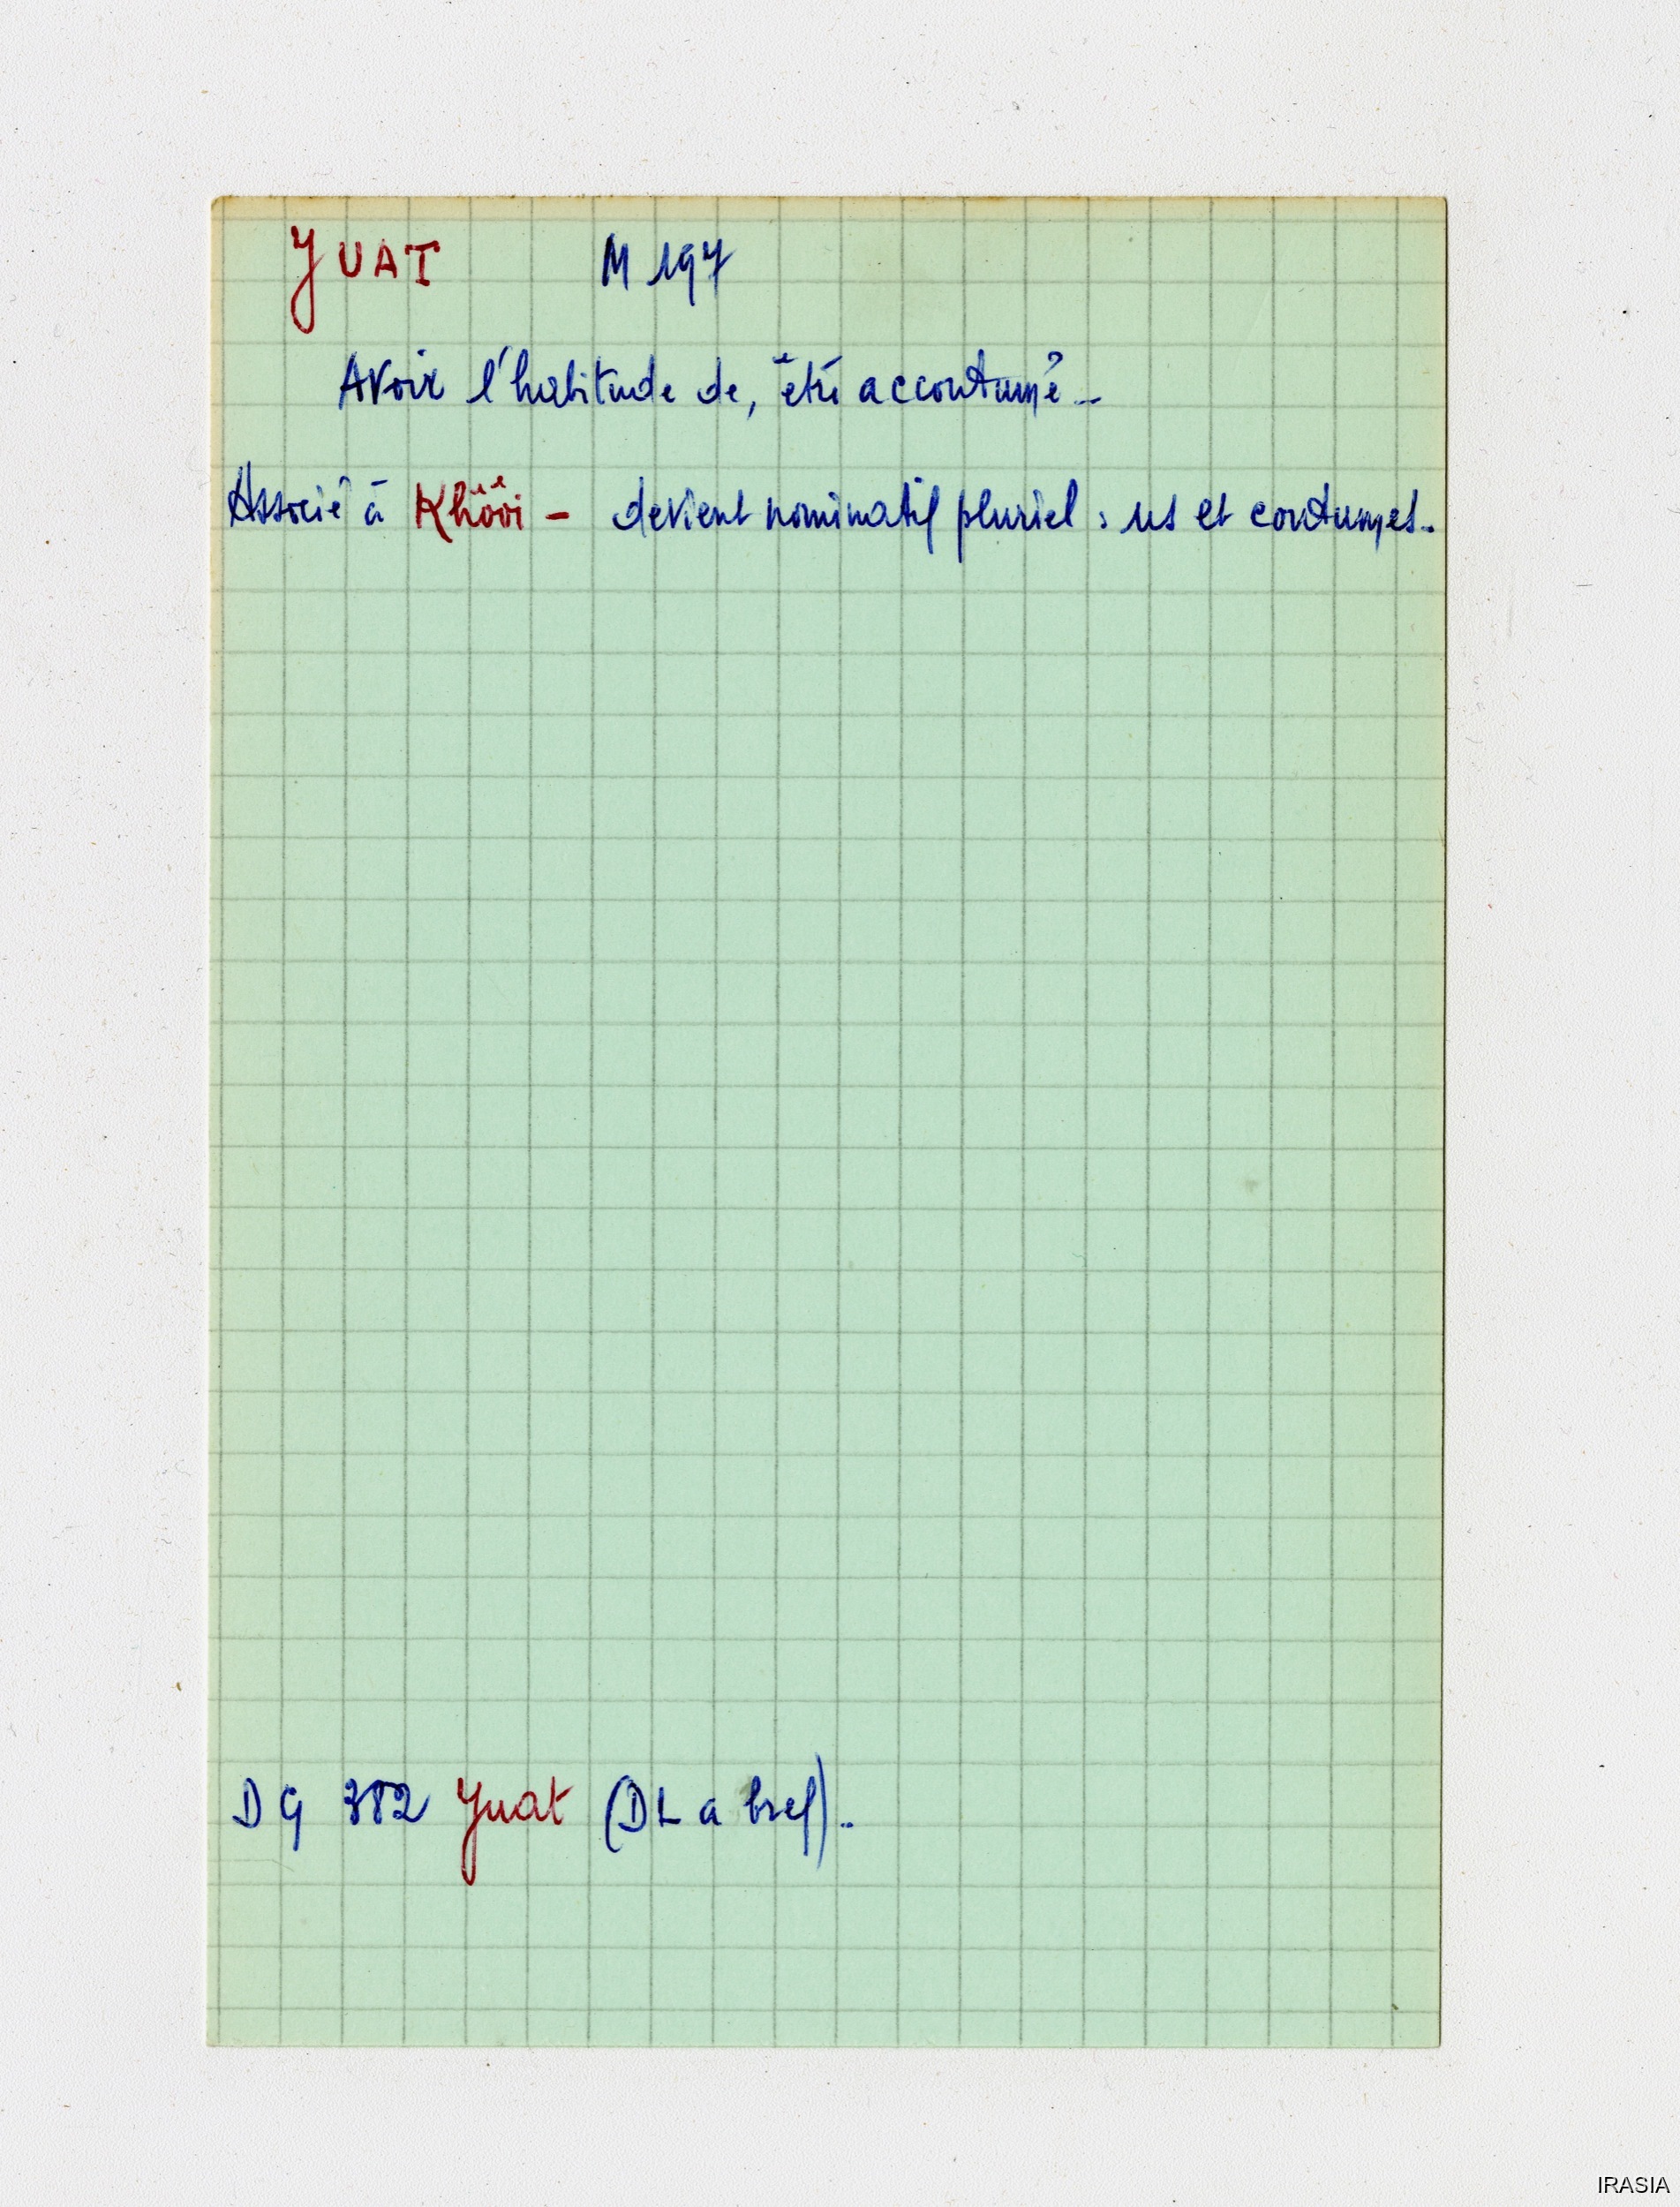 YUAT M 197
Avoir l'habitude de, être accoutumé -
Associé à Khôôi - devient nominatif pluriel : us et coutumes.
DG 382 Yuat (DL a bref)..
IRASIA